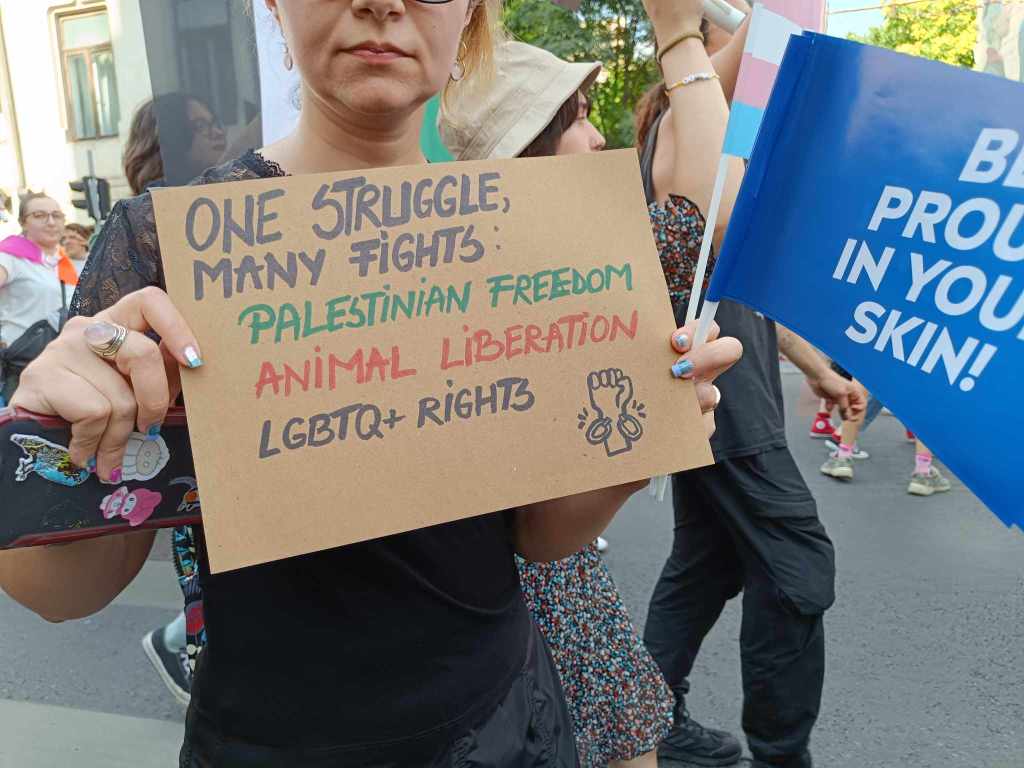 ONE STRUGGLE,
MANY FIGHTS:
PALESTINIAN FREEDOM
ANIMAL LIBERATION
LGBTQ+ RIGHTS
PROU
IN YOU
SKIN!